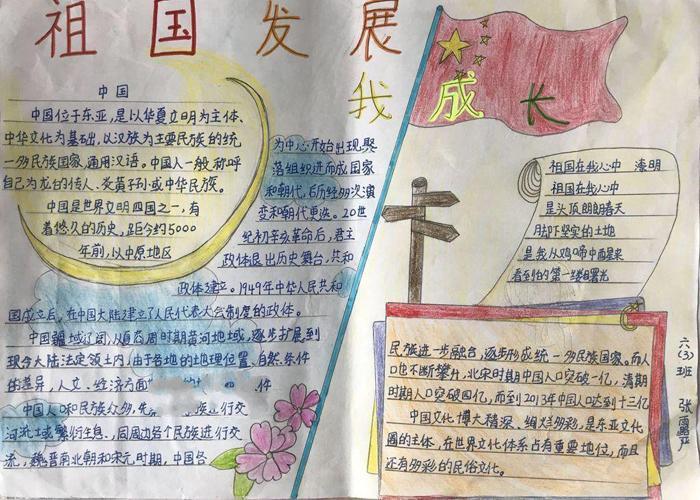 祖国发展
我成长
中国
中国位于东亚,是以华夏文明为主体、
中华文化为基础,以汉族为主要民族的统
一多民族国家,通用汉语。中国人一般称呼
自己为龙的传人、炎黄子孙或中华民族。
中国是世界文明四国之一,有
着悠久的历史,距今约5000
年前,以中原地区
为中心开始出现聚
落组织进而成国家
和朝代,后历经多次演
变和朝代更迭。20世
纪初辛亥革命后,君主
政体退出历史舞台,共和
政体建立。1949年中华人民共和
国成立后,在中国大陆建立了人民代表大会制度的政体。
中国疆域辽阔,从夏商周时期黄河地域,逐步扩展到
现今大陆法定领土内,由于各地的地理位置、自然条件
的差异,人文、经济方面
件
中国人口和民族众多,先
族进行交
河流域繁衍生息、同周边各个民族进行交
流,魏晋南北朝和宋元时期,中国各
祖国在我心中 海明
祖国在我心中
是头顶朗朗春天
脚下坚实的土地
是我从鸡啼中
看到的第一缕曙光
民族进一步融合,逐步形成统一多民族国家。而人
口也不断攀升,北宋时期中国人口突破一亿,清期
时期人口突破四亿,而到2013年中国人口达到十三亿
中国文化博大精深、绚烂多彩,是东亚文化
圈的主体,在世界文化体系占有重要地位,而且
还有多彩的民俗文化。
六(3)班 张